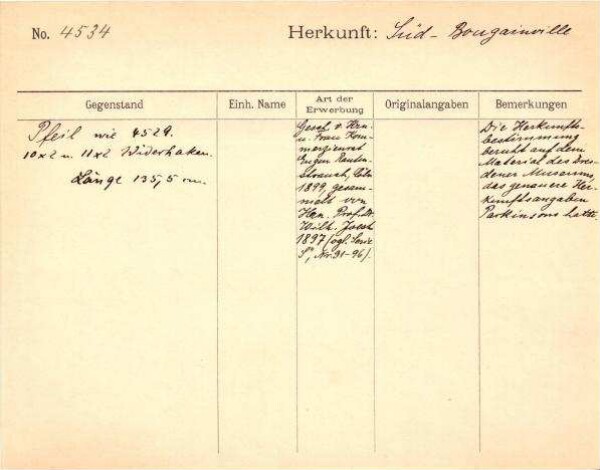 No. 4534
Herkunft: Süd-Bougainville
Gegenstand
Einh. Name
Art der
Erwerbung
Originalangaben
Bemerkungen
Pfeil wie 4529.
10x2 u. 11x2 Widerhaken.
Länge 135,5 cm.
Gesch. v. Hrn.
u. Frau Kom-
merzienrat
Eugen Rauten-
strauch, Cöln
1899, gesam-
melt von
Hrn. Prof. Dr.
Wilh. Joest
1897 (vgl. Serie
Nr. 31-96).
Die Herkunfts-
bestimmung
beruht auf dem
Material des Dres-
dener Museums,
das genauere Her-
kunftsangaben
Parkinsons hatte.